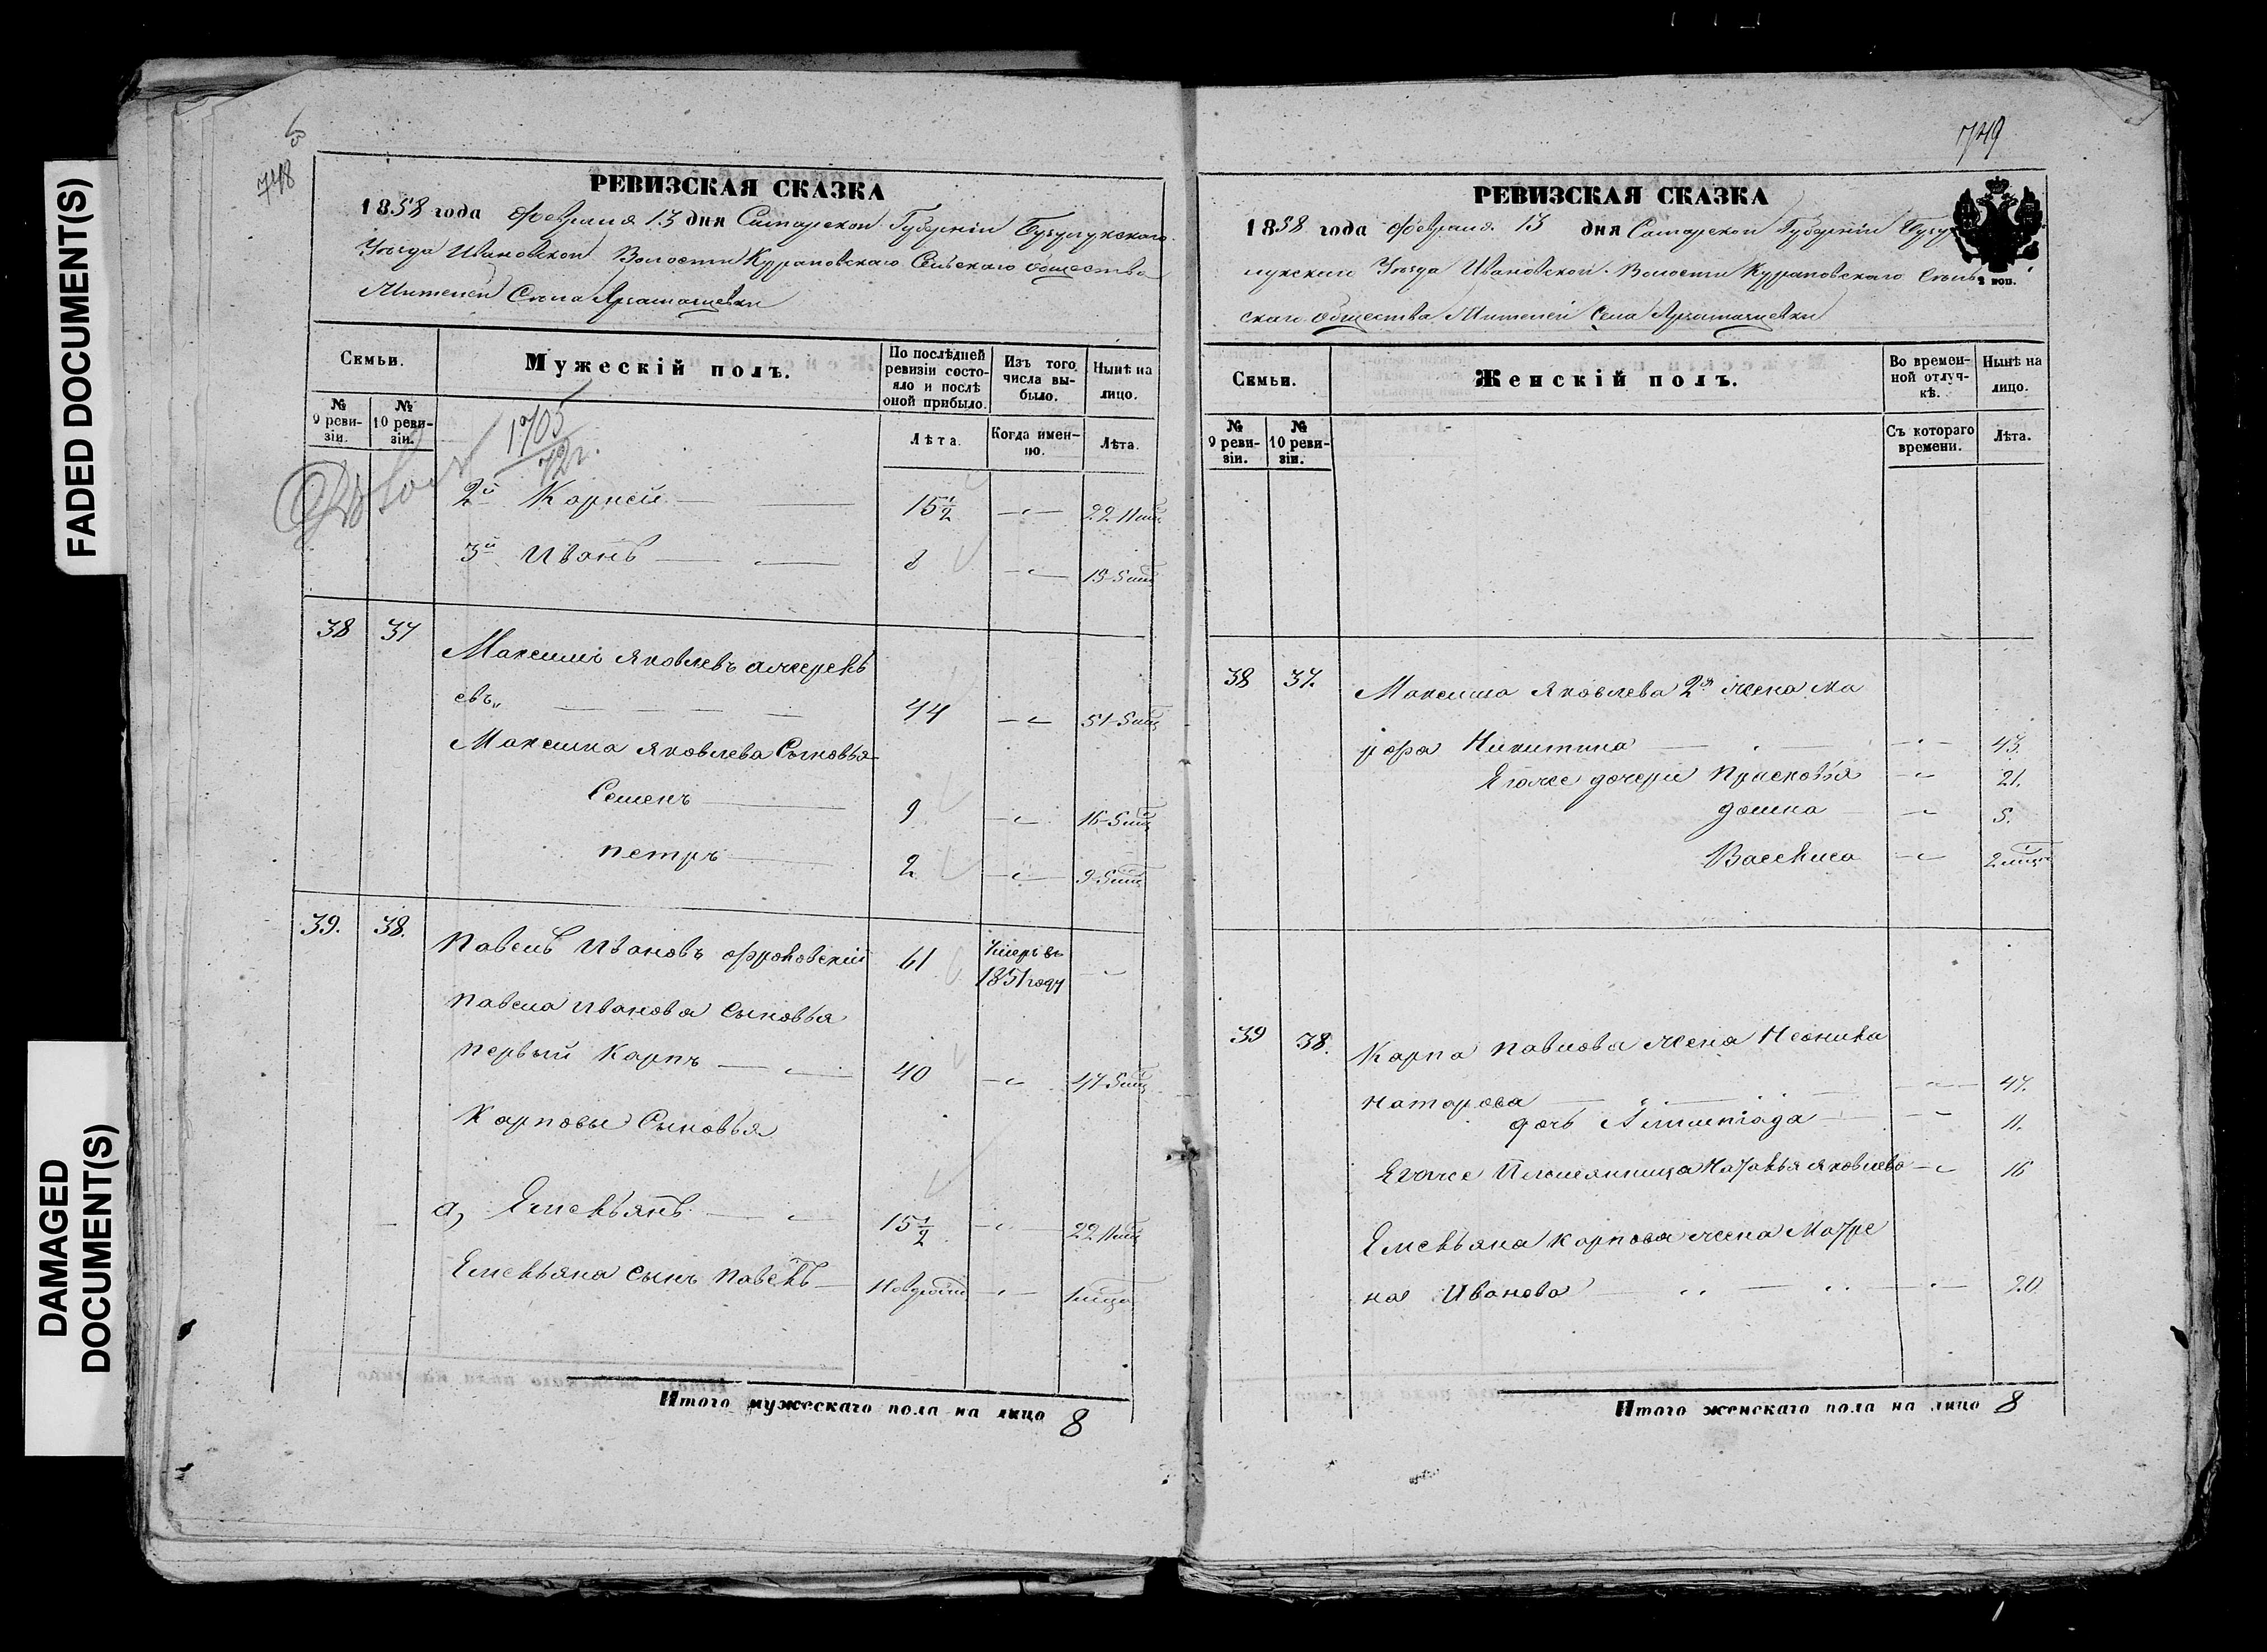 FADED DOCUMENT(S)
DAMAGED
DOCUMENT(S)
748
РЕВИЗСКАЯ СКАЗКА
1858 года февраля 13 дня Самарской Губерніи Бузулукскаго
Уѣзда Ивановской Волости Курановскаго Сельскаго общества
Жителей Села
Семьи.
№ 9 реви-зіи.
№ 10 реви-зіи.
Мужескій полъ.
По послѣдней ревизіи состо-яло и послѣ оной прибыло.
Лѣта.
Изъ того числа вы-было.
Когда имен-но.
Нынѣ на лицо.
Лѣта.
1705
72г.
2й Корней 15½ 22-11
3й Иванъ 8 15-5
38 37 Максимъ Яковлевъ
евъ 44 51-5
Максима Яковлева Сыновья
Семенъ 9 16-5
петръ 2 9-5
39. 38. Павелъ Ивановъ 61 Умеръ въ
1851 году
павела Иванова Сыновья
первый Карпъ 40 47-5
Карповы Сыновья
а, Емельянъ 15½ 22
Емельяна сынъ павелъ
Итого мужескаго пола на лицо 8
749
РЕВИЗСКАЯ СКАЗКА
1858 года февраля 13 дня Самарской Губерніи Бузу
лукскаго Уѣзда Ивановской Волости Курановскаго Сель
2 коп.
скаго общества Жителей Села
Семьи.
№ 9 реви-зіи.
№ 10 реви-зіи.
Женскій полъ.
Во времен-ной отлуч-кѣ.
Съ котораго времени.
Нынѣ на лицо.
Лѣта.
38 37. Максима Яковлева 2я жена ма
рфа Никитина 43.
Его же дочери Прасковья 21.
домна 5.
Василиса 2
39 38. Карпа павлова жена Неонила
47.
дочь 11.
Его же Племянница Наталья Яковлева 16
Емельяна Карпова жена Матре
на Иванова 20
Итого женскаго пола на лицо 8